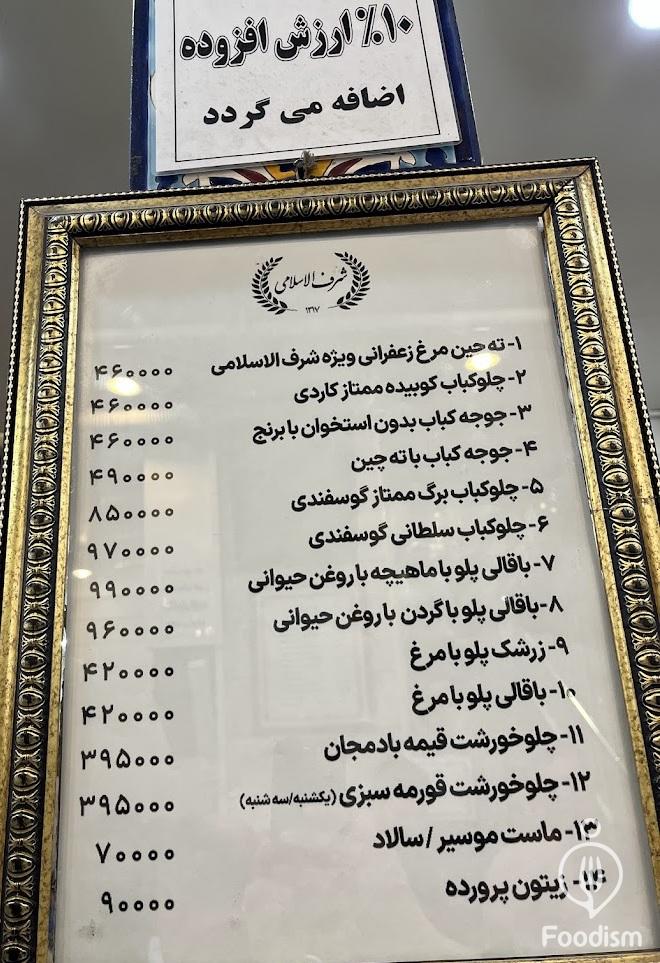 ۱۰٪ ارزش افزوده
اضافه می گردد
شرف الاسلامی
۱۳۱۷
۱- ته چین مرغ زعفرانی ویژه شرف الاسلامی ۴۶۰۰۰۰
۲- چلوکباب کوبیده ممتاز کاردی ۴۶۰۰۰۰
۳- جوجه کباب بدون استخوان با برنج ۴۶۰۰۰۰
۴- جوجه کباب با ته چین ۴۹۰۰۰۰
۵- چلوکباب برگ ممتاز گوسفندی ۸۵۰۰۰۰
۶- چلوکباب سلطانی گوسفندی ۹۷۰۰۰۰
۷- باقالی پلو با ماهیچه با روغن حیوانی ۹۹۰۰۰۰
۸- باقالی پلو با گردن با روغن حیوانی ۹۶۰۰۰۰
۹- زرشک پلو با مرغ ۴۲۰۰۰۰
۱۰- باقالی پلو با مرغ ۴۲۰۰۰۰
۱۱- چلوخورشت قیمه بادمجان ۳۹۵۰۰۰
۱۲- چلوخورشت قورمه سبزی (یکشنبه/سه شنبه) ۳۹۵۰۰۰
۱۳- ماست موسیر / سالاد ۷۰۰۰۰
۱۴- زیتون پرورده ۹۰۰۰۰
Foodism